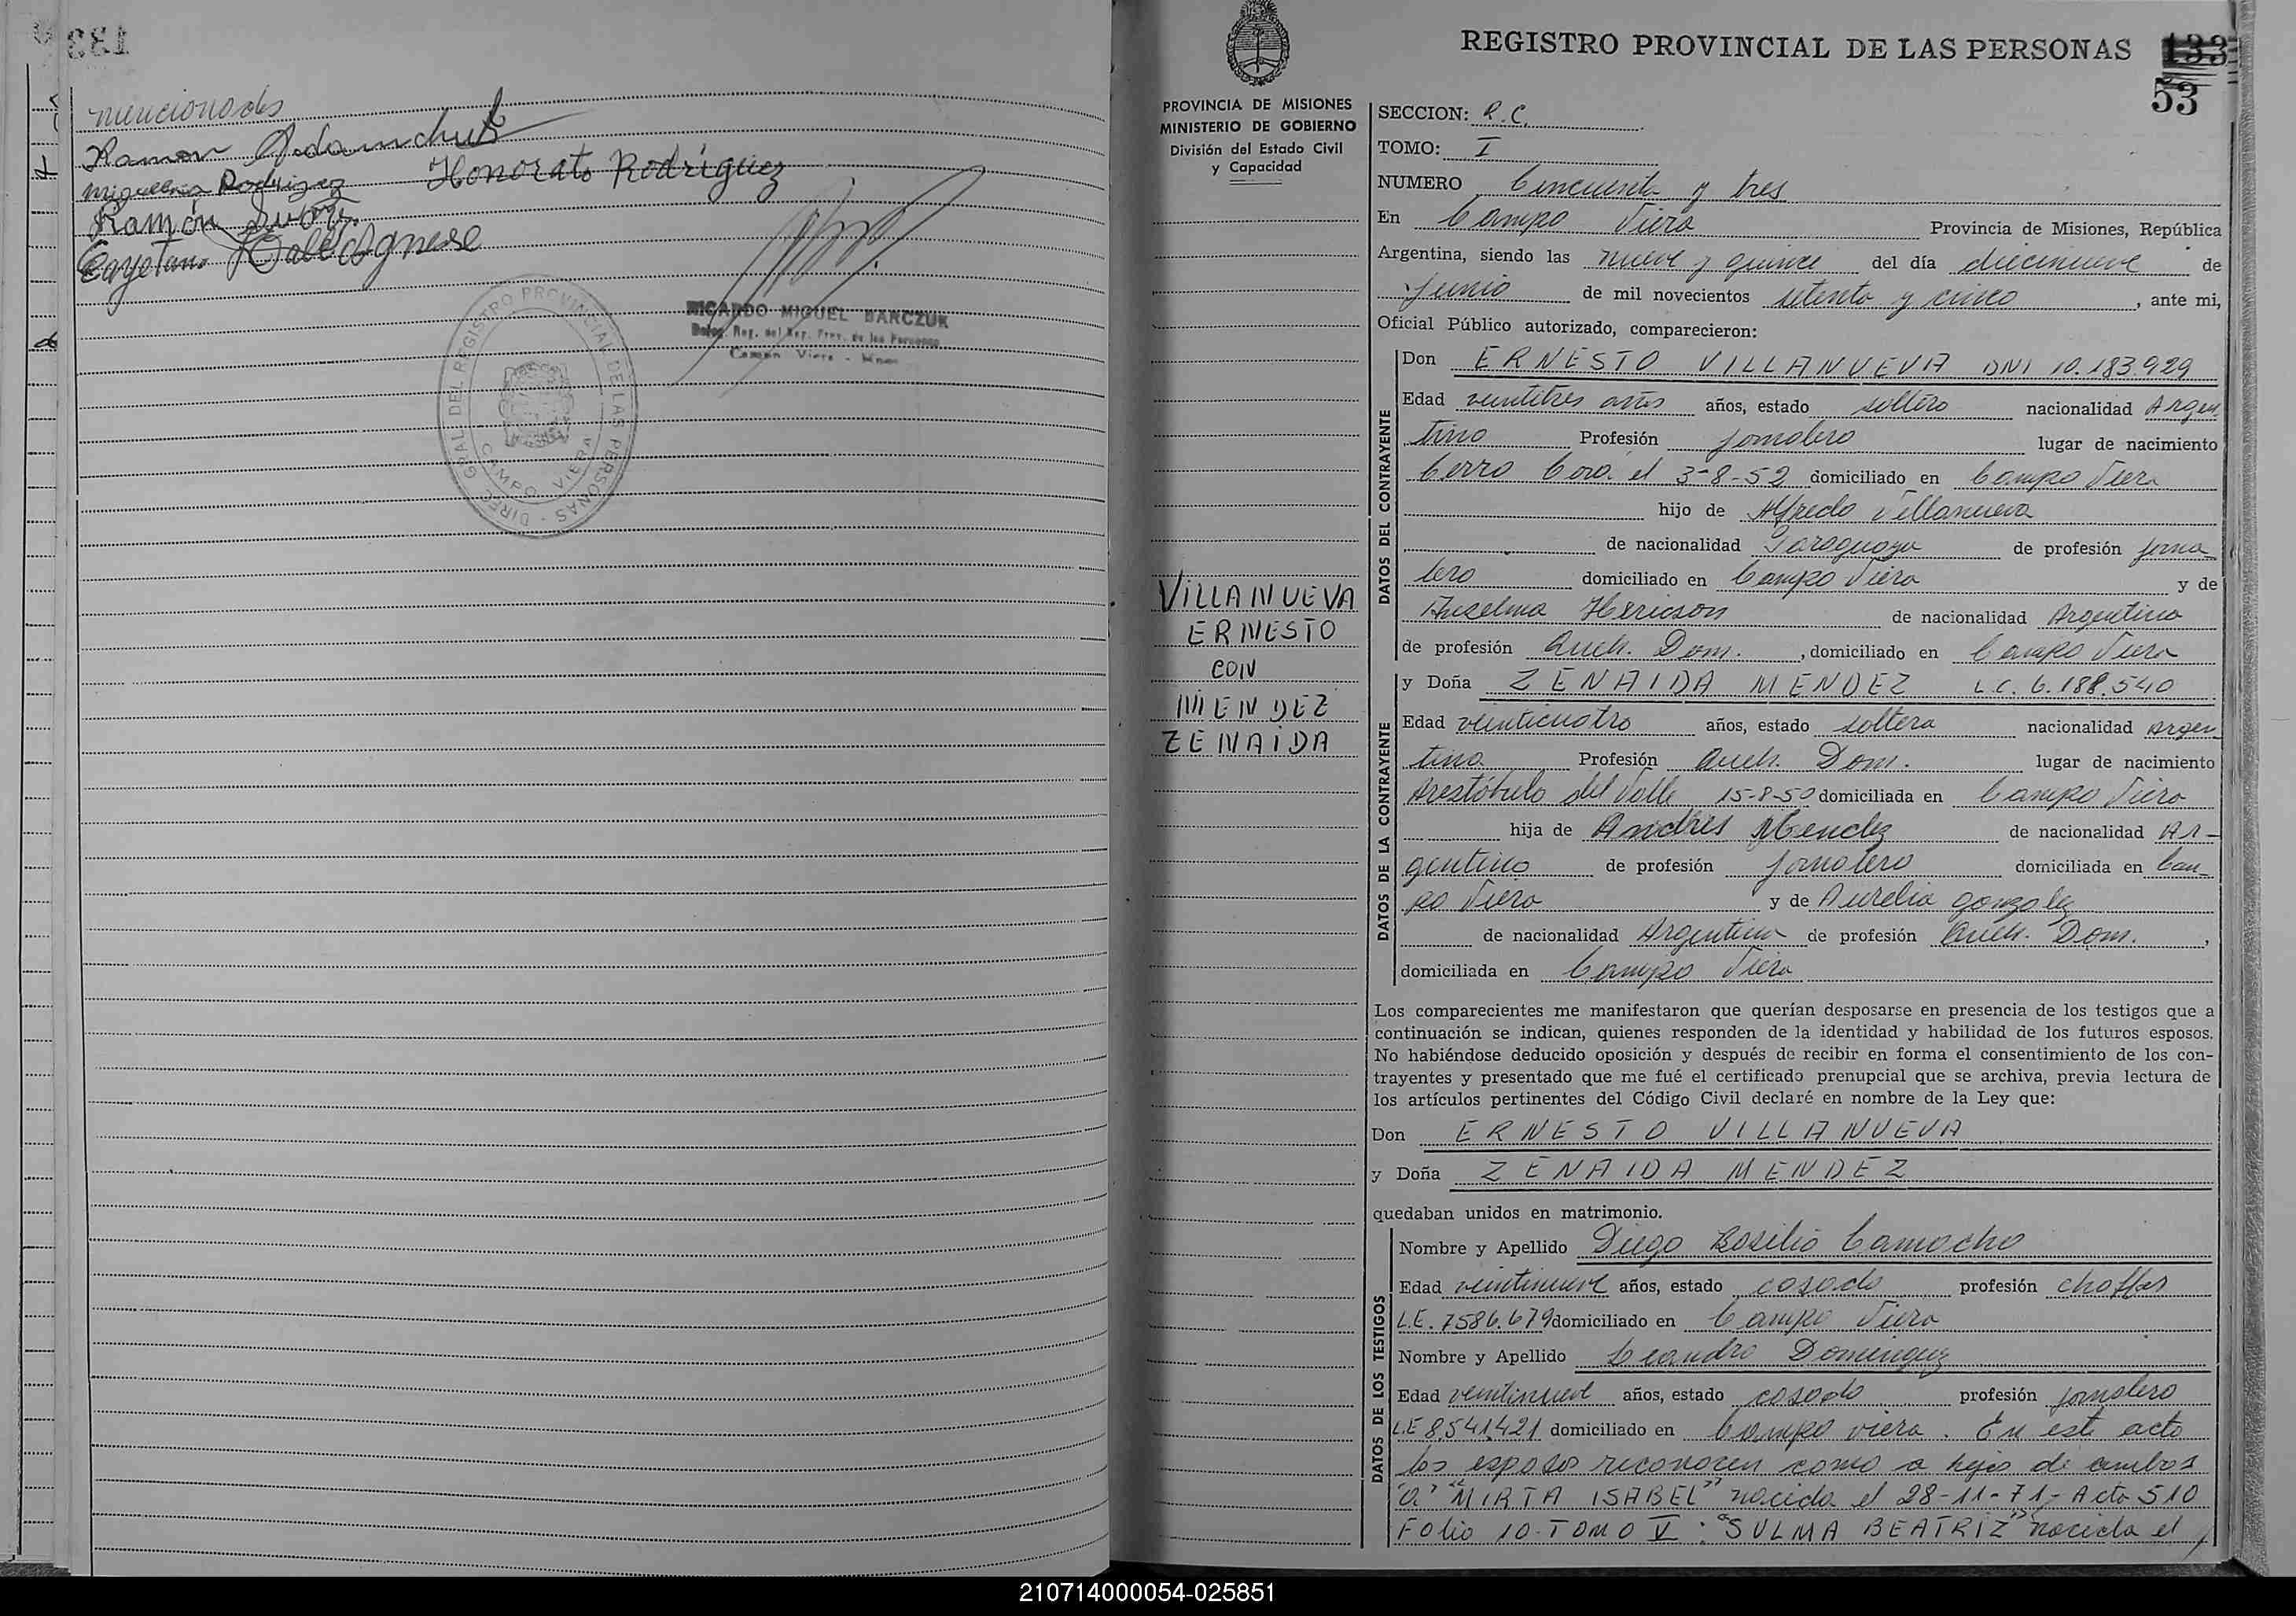 133
mencionados
Ramon Adamchuk
Miguelina Rodriguez
Honorato Rodriguez
Ramón
Cayetano Dall'Agnese
RICARDO MIGUEL BARCZUK
Deleg. Reg. del Reg. Prov. de las Personas
Campo Viera - Mnes
DIREC. GRAL. DEL REGISTRO PROVINCIAL DE LAS PERSONAS
CAMPO VIERA
REGISTRO PROVINCIAL DE LAS PERSONAS 133
53
PROVINCIA DE MISIONES
MINISTERIO DE GOBIERNO
División del Estado Civil
y Capacidad
VILLANUEVA
ERNESTO
CON
MENDEZ
ZENAIDA
SECCION: R.C.
TOMO: I
NUMERO Cincuenta y tres
En Campo Viera Provincia de Misiones, República
Argentina, siendo las nueve y quince del día diecinueve de
Junio de mil novecientos setenta y cinco, ante mi,
Oficial Público autorizado, comparecieron:
DATOS DEL CONTRAYENTE
Don ERNESTO VILLANUEVA DNI 10.183.929
Edad veintitres años años, estado soltero nacionalidad Argen
tino Profesión jornalero lugar de nacimiento
Cerro Cora el 3-8-52 domiciliado en Campo Viera
hijo de Alfredo Villanueva
de nacionalidad Paraguaya de profesión jorna
lero domiciliado en Campo Viera y de
Anselma Hericson de nacionalidad Argentina
de profesión Queh. Dom. , domiciliado en Campo Viera
DATOS DE LA CONTRAYENTE
y Doña ZENAIDA MENDEZ L.C. 6.188.540
Edad veinticuatro años, estado soltera nacionalidad Argen
tina Profesión Queh. Dom. lugar de nacimiento
Arestóbulo del Valle 15-8-50 domiciliada en Campo Viera
hija de Andrés Mendez de nacionalidad Ar-
gentino de profesión jornalero domiciliada en Cam-
po Viera y de Aurelia Gonzalez
de nacionalidad Argentina de profesión Queh. Dom. ,
domiciliada en Campo Viera
Los comparecientes me manifestaron que querían desposarse en presencia de los testigos que a
continuación se indican, quienes responden de la identidad y habilidad de los futuros esposos.
No habiéndose deducido oposición y después de recibir en forma el consentimiento de los con-
trayentes y presentado que me fué el certificado prenupcial que se archiva, previa lectura de
los artículos pertinentes del Código Civil declaré en nombre de la Ley que:
Don ERNESTO VILLANUEVA
y Doña ZENAIDA MENDEZ
quedaban unidos en matrimonio.
DATOS DE LOS TESTIGOS
Nombre y Apellido Diego Basilio Camocho
Edad veintinueve años, estado casado profesión choffer
L.E. 7586.679 domiciliado en Campo Viera
Nombre y Apellido Leandro Dominguez
Edad veintinueve años, estado casado profesión jornalero
L.E 8.541.421 domiciliado en Campo viera. En este acto
los esposos reconocen como a hijos de ambos
a "MIRTA ISABEL" nacida el 28-11-71- Acta 510
Folio 10. TOMO V: "SULMA BEATRIZ" nacida el
210714000054-025851